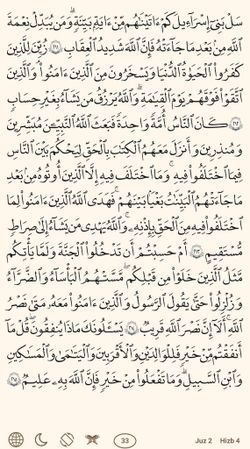 سَلْ بَنِىٓ إِسْرَٰٓءِيلَ كَمْ ءَاتَيْنَٰهُم مِّنْ ءَايَةٍۭ بَيِّنَةٍ ۗ وَمَن يُبَدِّلْ نِعْمَةَ
ٱللَّهِ مِنۢ بَعْدِ مَا جَآءَتْهُ فَإِنَّ ٱللَّهَ شَدِيدُ ٱلْعِقَابِ ٢١١ زُيِّنَ لِلَّذِينَ
كَفَرُوا۟ ٱلْحَيَوٰةُ ٱلدُّنْيَا وَيَسْخَرُونَ مِنَ ٱلَّذِينَ ءَامَنُوا۟ ۘ وَٱلَّذِينَ
ٱتَّقَوْا۟ فَوْقَهُمْ يَوْمَ ٱلْقِيَٰمَةِ ۗ وَٱللَّهُ يَرْزُقُ مَن يَشَآءُ بِغَيْرِ حِسَابٍ
٢١٢ كَانَ ٱلنَّاسُ أُمَّةً وَٰحِدَةً فَبَعَثَ ٱللَّهُ ٱلنَّبِيِّـۧنَ مُبَشِّرِينَ
وَمُنذِرِينَ وَأَنزَلَ مَعَهُمُ ٱلْكِتَٰبَ بِٱلْحَقِّ لِيَحْكُمَ بَيْنَ ٱلنَّاسِ
فِيمَا ٱخْتَلَفُوا۟ فِيهِ ۚ وَمَا ٱخْتَلَفَ فِيهِ إِلَّا ٱلَّذِينَ أُوتُوهُ مِنۢ بَعْدِ
مَا جَآءَتْهُمُ ٱلْبَيِّنَٰتُ بَغْيًۢا بَيْنَهُمْ ۖ فَهَدَى ٱللَّهُ ٱلَّذِينَ ءَامَنُوا۟ لِمَا
ٱخْتَلَفُوا۟ فِيهِ مِنَ ٱلْحَقِّ بِإِذْنِهِۦ ۗ وَٱللَّهُ يَهْدِى مَن يَشَآءُ إِلَىٰ صِرَٰطٍ
مُّسْتَقِيمٍ ٢١٣ أَمْ حَسِبْتُمْ أَن تَدْخُلُوا۟ ٱلْجَنَّةَ وَلَمَّا يَأْتِكُم
مَّثَلُ ٱلَّذِينَ خَلَوْا۟ مِن قَبْلِكُم ۖ مَّسَّتْهُمُ ٱلْبَأْسَآءُ وَٱلضَّرَّآءُ
وَزُلْزِلُوا۟ حَتَّىٰ يَقُولَ ٱلرَّسُولُ وَٱلَّذِينَ ءَامَنُوا۟ مَعَهُۥ مَتَىٰ نَصْرُ
ٱللَّهِ ۗ أَلَآ إِنَّ نَصْرَ ٱللَّهِ قَرِيبٌ ٢١٤ يَسْـَٔلُونَكَ مَاذَا يُنفِقُونَ ۖ قُلْ مَآ
أَنفَقْتُم مِّنْ خَيْرٍ فَلِلْوَٰلِدَيْنِ وَٱلْأَقْرَبِينَ وَٱلْيَتَٰمَىٰ وَٱلْمَسَٰكِينِ
وَٱبْنِ ٱلسَّبِيلِ ۗ وَمَا تَفْعَلُوا۟ مِنْ خَيْرٍ فَإِنَّ ٱللَّهَ بِهِۦ عَلِيمٌ ٢١٥
33 Juz 2 Hizb 4